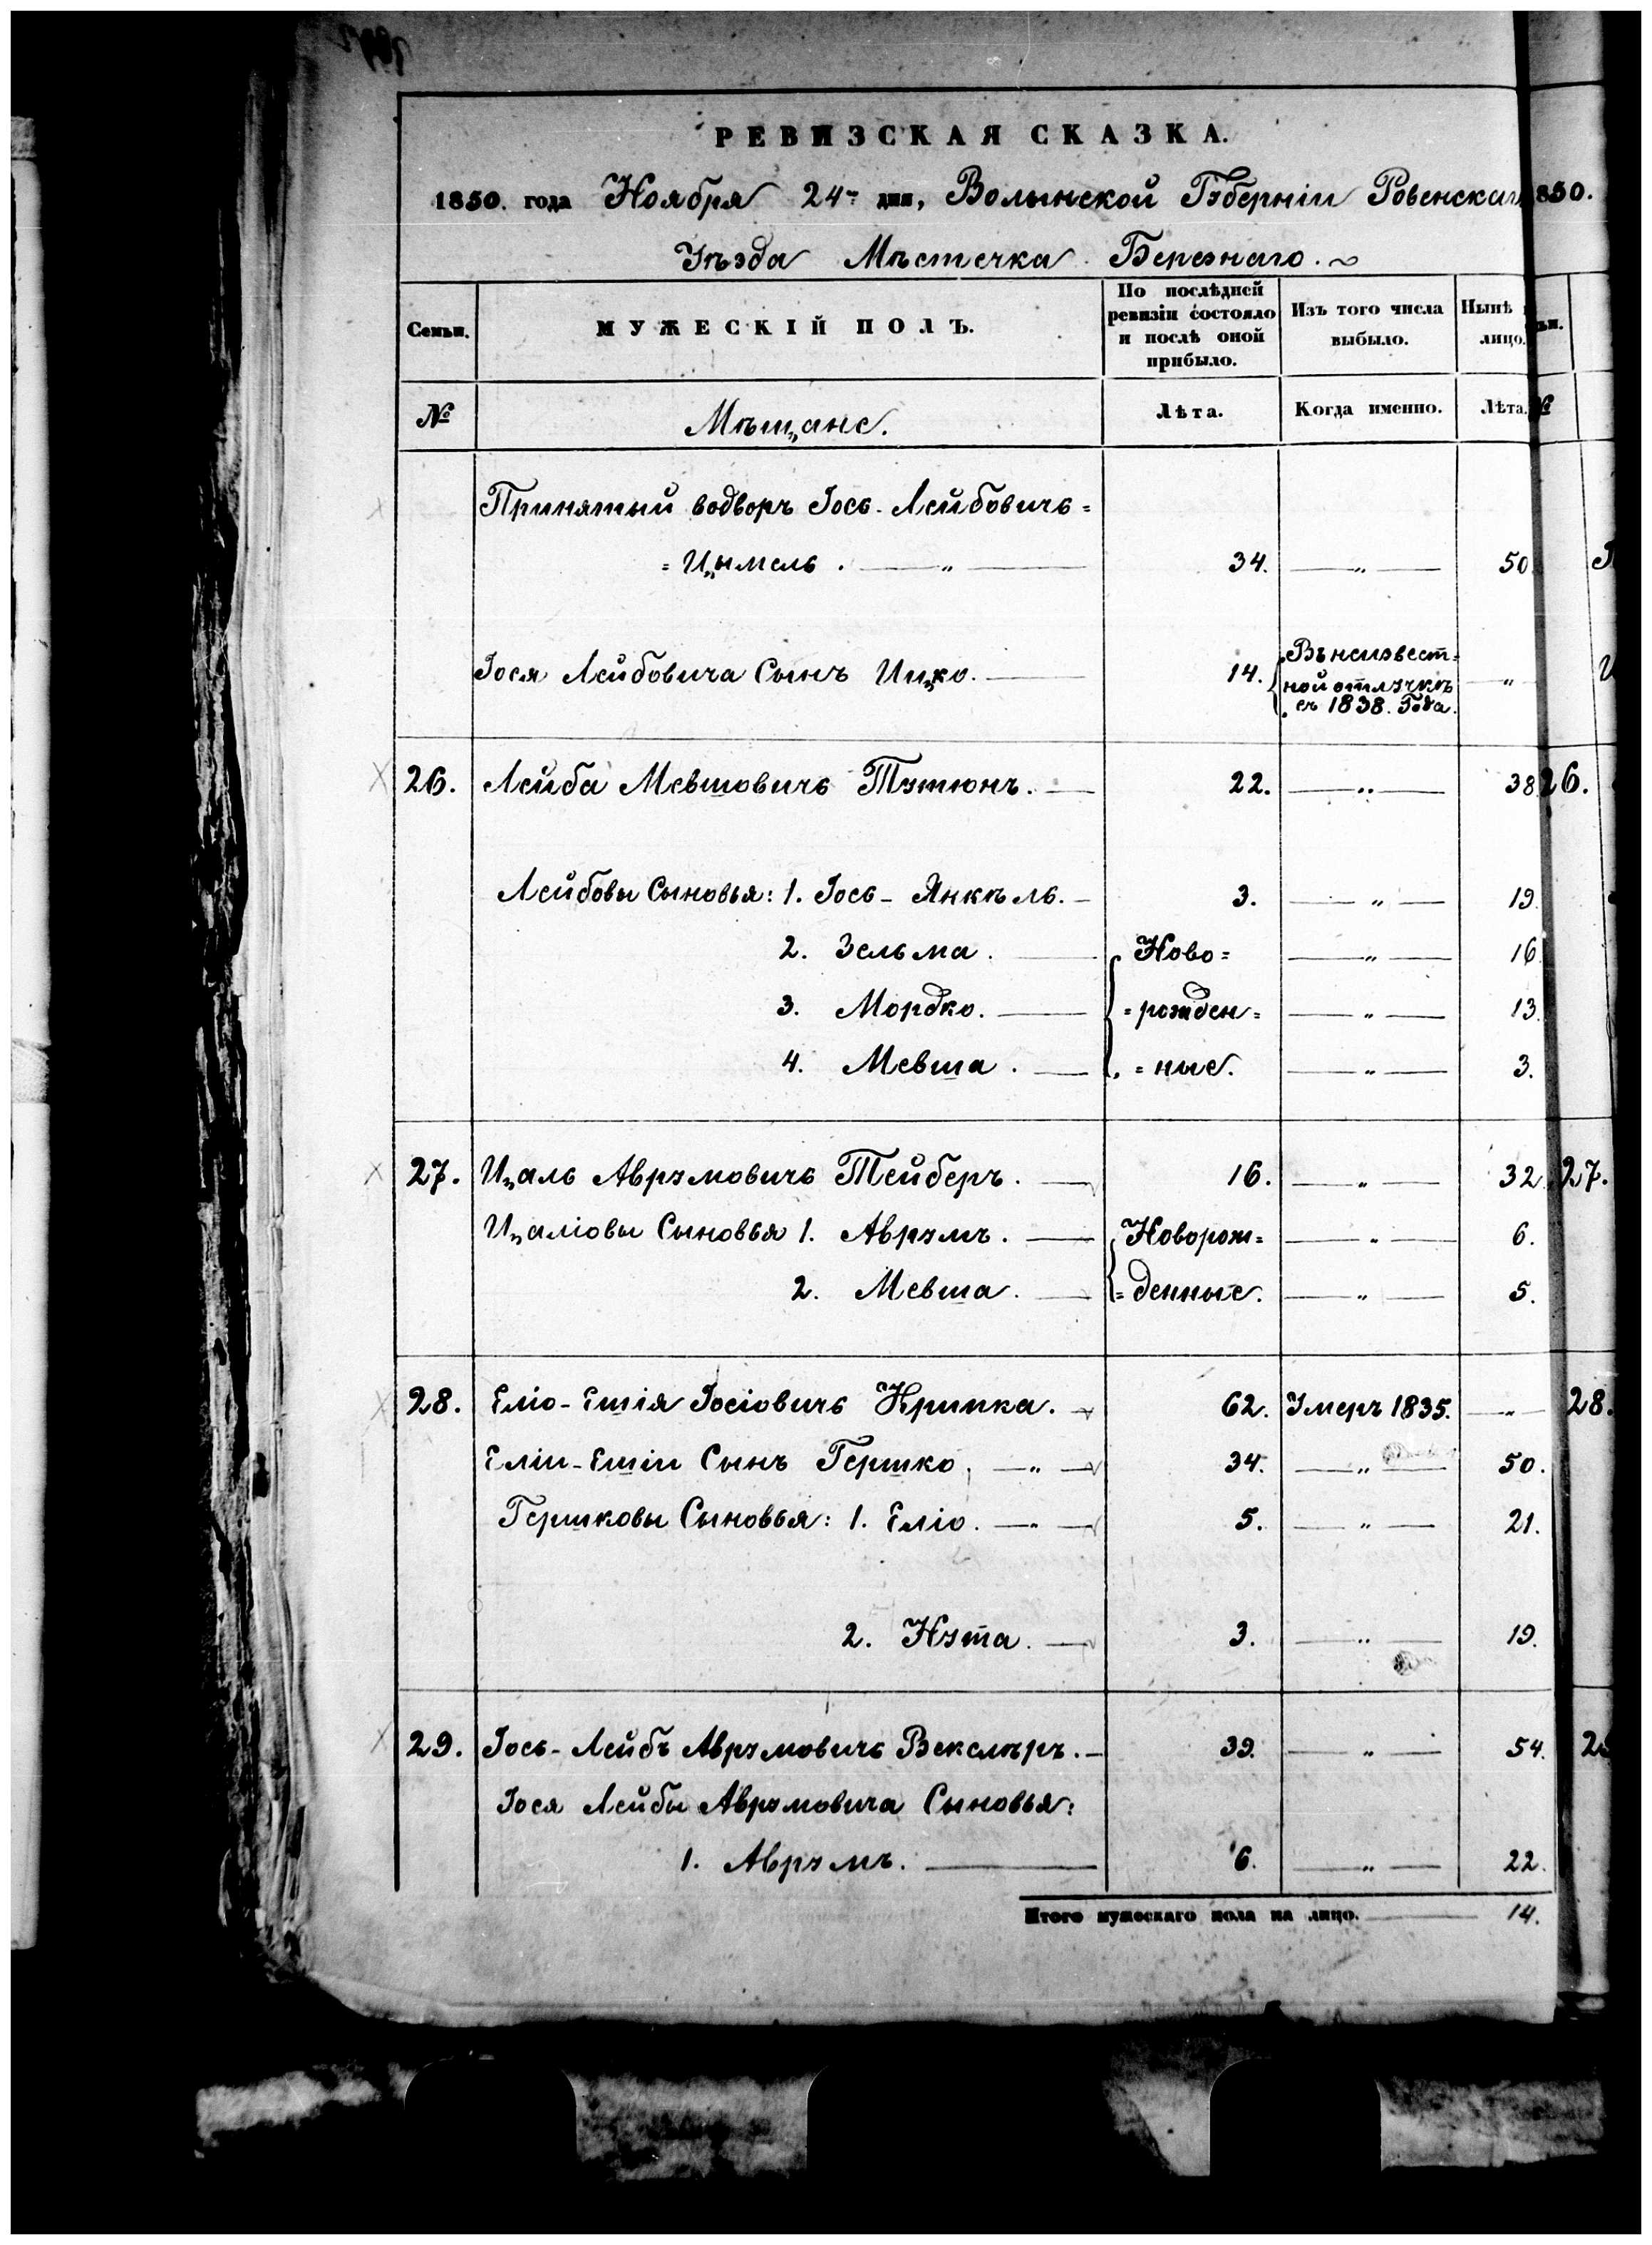 РЕВИЗСКАЯ СКАЗКА.
1850. года Ноября 24 дня, Волынской Губерніи Ровенскаго 850.
Уѣзда Мѣстечка Березнаго.
Семьи. МУЖЕСКІЙ ПОЛЪ. По послѣдней ревизіи состояло и послѣ оной прибыло. Изъ того числа выбыло. Нынѣ лицо.
№ Мѣщане. Лѣта. Когда именно. Лѣта. №
Принятый водворъ Іось-Лейбовичь=
=Цымель. —„— 34. —„— 50
Іося Лейбовича Сынъ Ицко. — 14. Въ неизвест=
ной отлучкѣ —„—
съ 1838. Года.
26. Лейба Мевшовичь Тутюнъ. — 22. —„— 38 26.
Лейбовы Сыновья: 1. Іось-Янкѣль. — 3. —„— 19.
2. Зельма. — Ново= —„— 16.
3. Мордко. — =рожден= —„— 13.
4. Мевша. — =ные. —„— 3.
27. Цаль Аврумовичь Тейберъ. — 16. —„— 32. 27.
Цаліовы Сыновья 1. Аврумъ. — Новорож= —„— 6.
2. Мевша. — =денные. —„— 5.
28. Еліо-Ешія Іосіовичь Крипка. — 62. Умеръ 1835. —„— 28.
Еліи-Ешіи Сынъ Гершко, —„— 34. —„— 50.
Гершковы Сыновья: 1. Еліо. —„— 5. —„— 21.
2. Нута. — 3. —„— 19.
29. Іось-Лейбъ Аврумовичь Векслѣръ. — 39. —„— 54. 2
Іося Лейбы Аврумовича Сыновья:
1. Аврумъ. — 6. —„— 22.
Итого мужескаго пола на лицо. — 14.